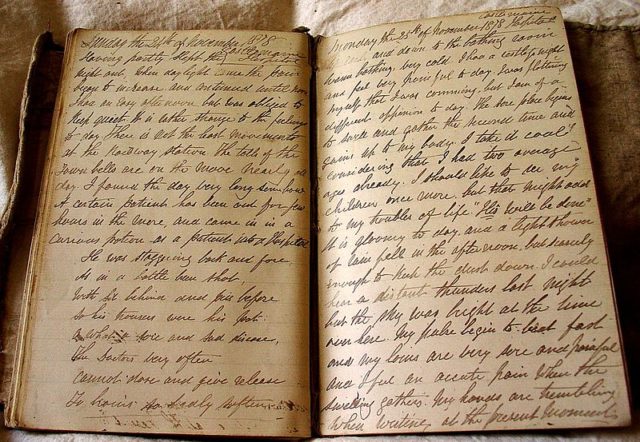 Sunday the 24th of November 1878
Castlemaine
Having partly slept the Hospital
night out, when daylight came the pain
began to increase and continued until noon
I has an easy afternoon but was obliged to
keep quiet. It is rather strange to the feelings
to day there is not the least movement
at the Railway station the tolls of the
town bells are on the move nearly all
day. I found the day very long
A certain patient has been out for few
hours in the more, and came in in a
curious potion as a patient just a Hospital
He was staggering back and fore
As in a battle been shot,
With bit behind and bit before
So his trousers were his lot.
O what a sore and sad disease,
The Doctors very often
Cannot dose and give release
Its pains so sadly soften
Castlemaine
Monday the 25th of November 1878 Hospital
and down to the bathing room
warm bathing very cold I have a restless night
and feel very painful to day I was flattering
myself that I was comming, but I am of a
different oppenion to day. The sore place begins
to swell and gather the second time and
pains up to my body. I take it cool
considering that I had two average
ages already. I should like to see my
children once more, but that might add
to my troubles of life "His will be done"
It is gloomy to day and a light shower
of rain fell in the afternoon, but scarcely
enough to keep the dust down. I could
hear a distant thunders last night
but the sky was bright at the time
over here. My pulse begin to beat fast
and my loins are very sore and painful
and I feel an accute pain when the
swelling gathers. My hands are trembling
when writing at the present moment